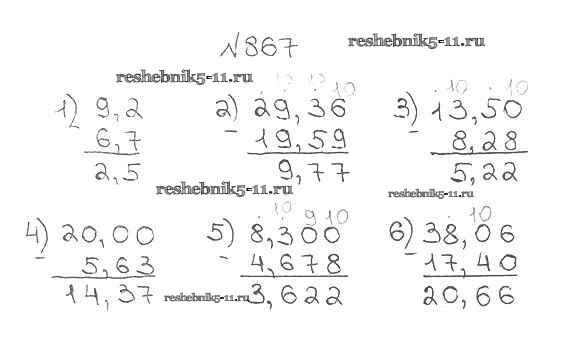 №867
reshebnik5-11.ru
reshebnik5-11.ru
10 10 10
1) 9,2 2) 29,36 3) 13,50
- 6,7 - 19,59 - 8,28
2,5 9,77 5,22
reshebnik5-11.ru reshebnik5-11.ru
10 9 10 10
4) 20,00 5) 8,300 6) 38,06
- 5,63 - 4,678 - 17,40
14,37 3,622 20,66
reshebnik5-11.ru